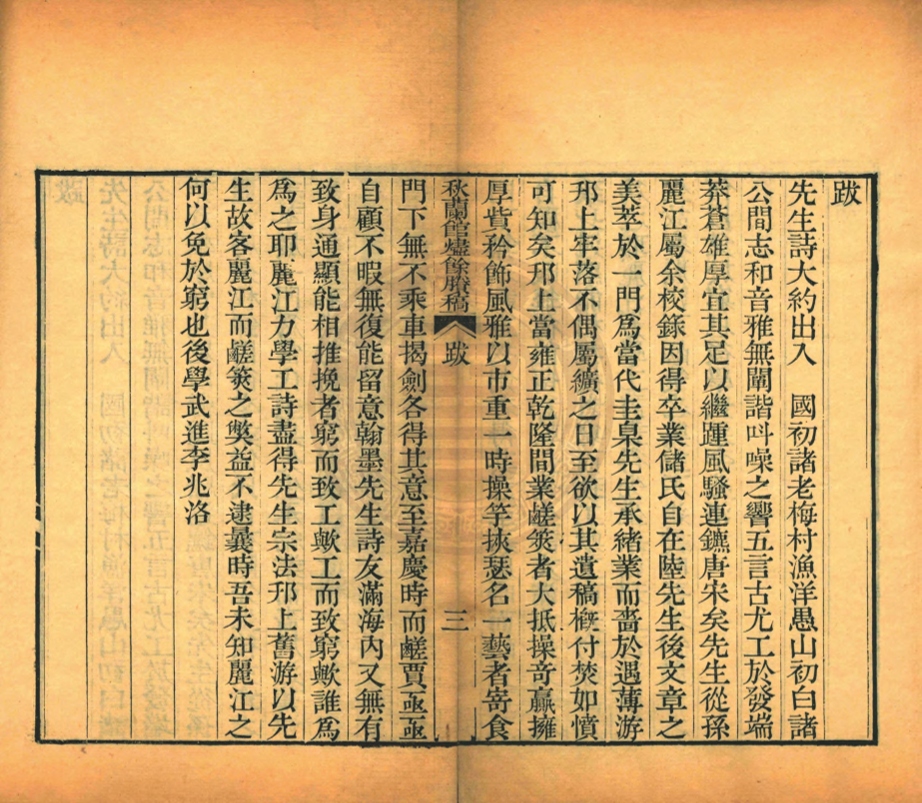 跋
先生詩大約出入　國初諸老梅村漁洋愚山初白諸
公間志和音雅無闡諧呌噪之響五言古尤工於發端
莽蒼雄厚宜其足以繼踵風騷連鑣唐宋矣先生從孫
麗江屬余校錄因得卒業儲氏自在陸先生後文章之
美萃於一門爲當代圭臬先生承緒業而嗇於遇薄游
邗上牢落不偶屬纊之日至欲以其遺稿槪付焚如憤
可知矣邗上當雍正乾隆間業鹺筴者大抵操奇贏擁
厚貲矜飾風雅以市重一時操竽挾瑟名一藝者寄食
秋蘭館燼餘賸稿 跋 三
門下無不乘車揭劍各得其意至嘉慶時而鹺賈亟亟
自顧不暇無復能留意翰墨先生詩友滿海內又無有
致身通顯能相推挽者窮而致工歟工而致窮歟誰爲
爲之耶麗江力學工詩盡得先生宗法邗上舊游以先
生故客麗江而鹺筴之獘益不逮曩時吾未知麗江之
何以免於窮也後學武進李兆洛